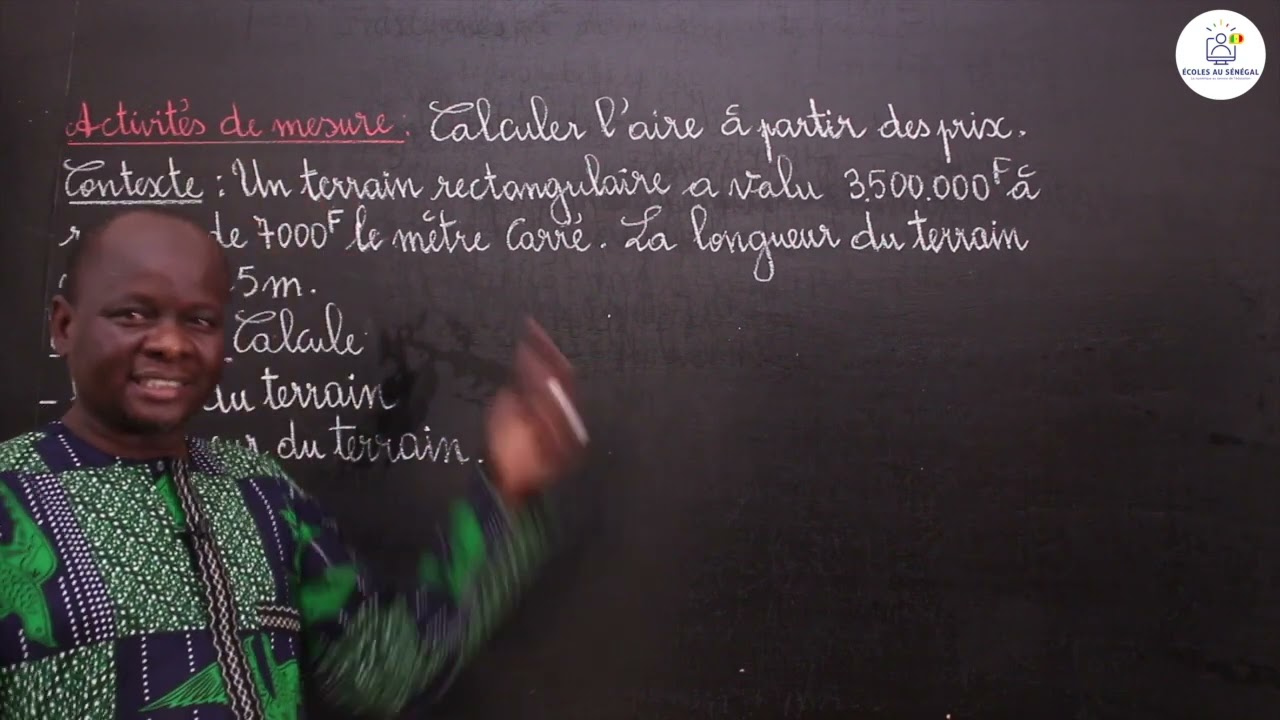 ÉCOLES AU SÉNÉGAL
Activités de mesure : Calculer l'aire à partir des prix.
Contexte : Un terrain rectangulaire a valu 3.500.000F à
de 7000F le mètre carré. La longueur du terrain
5m.
Calcule
- du terrain
du terrain.